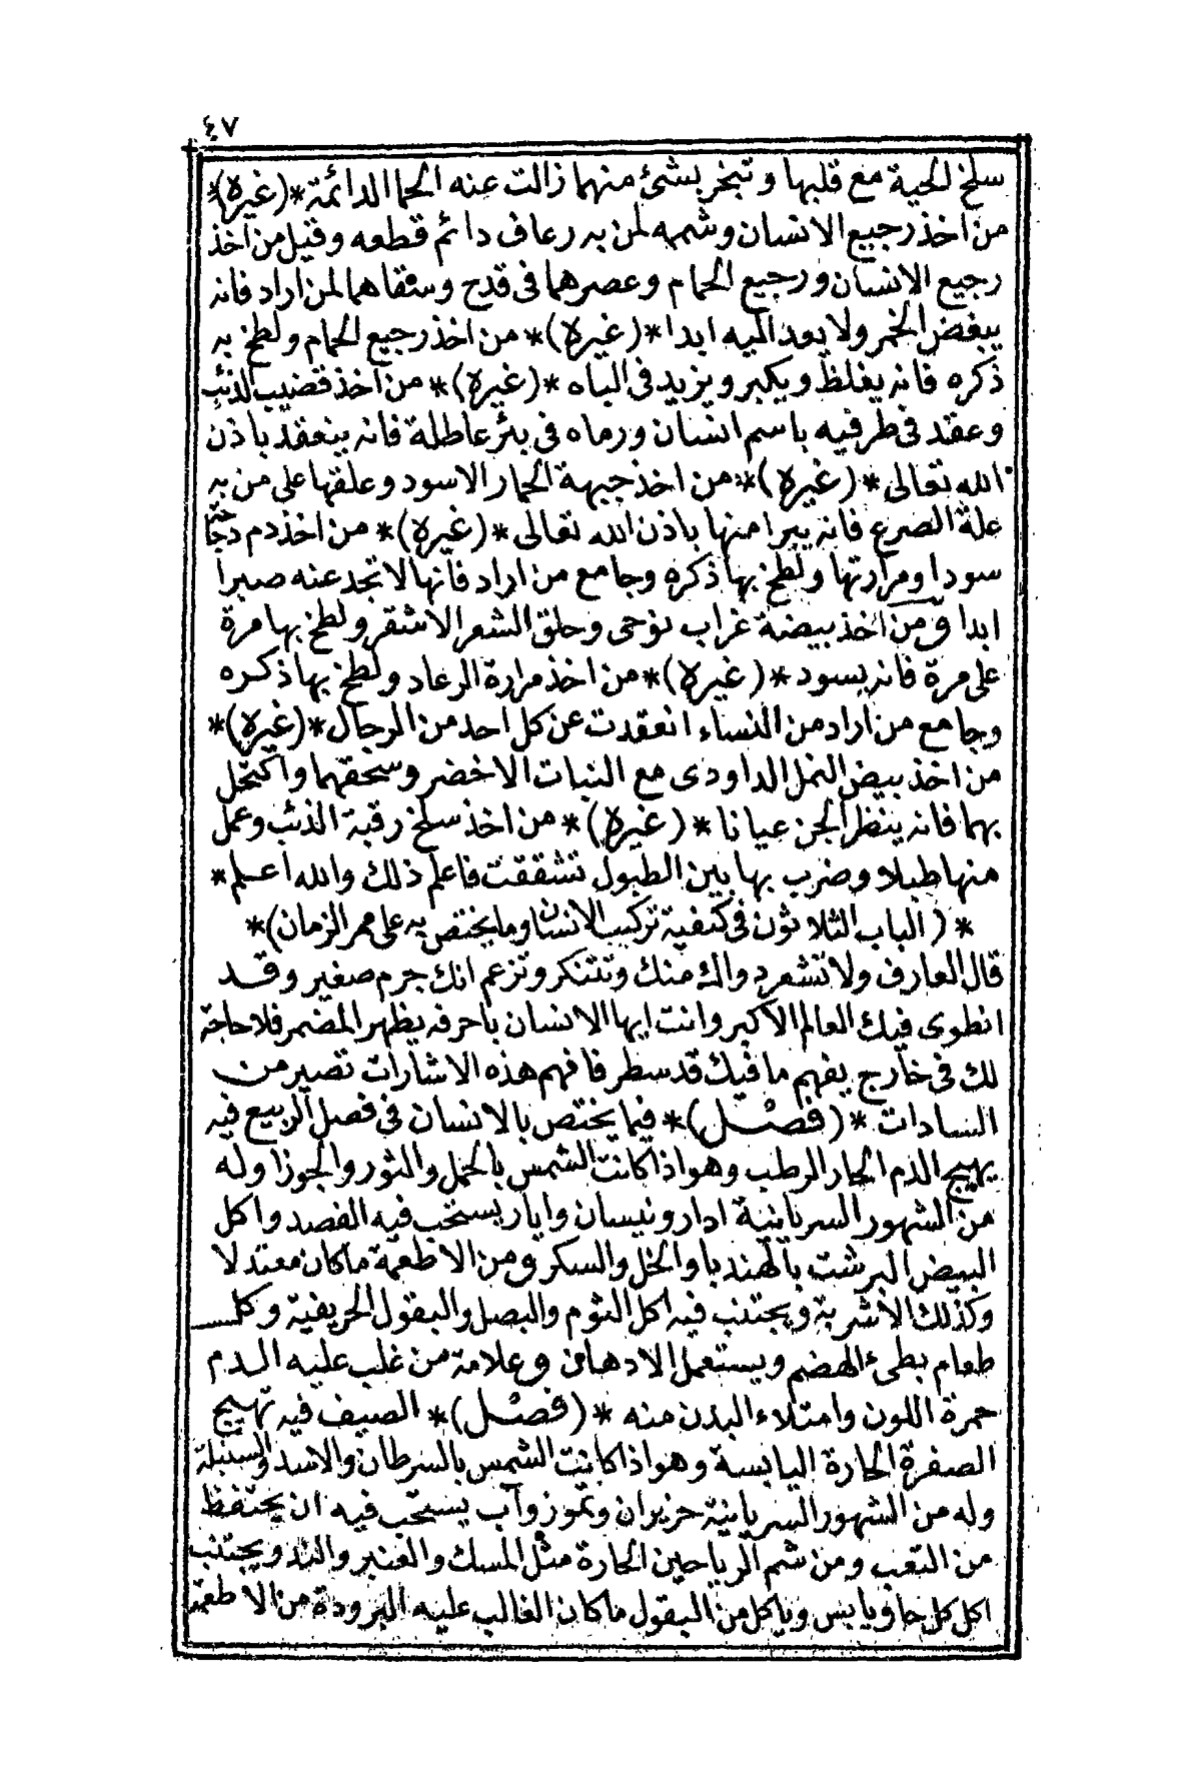 ٤٧
سلخ الحية مع قلبها وتبخر بشئ منهما زالت عنه الحما الدائمة *(غيره)*
من اخذ رجيع الانسان وشمه لمن به رعاف دائم قطعه وقيل من اخذ
رجيع الانسان ورجيع الحمام وعصرهما فى قدح وسقاهما لمن اراد فانه
يبغض الخمر ولا يعد اليه ابدا *(غيره)* من اخذ رجيع الحمام ولطخ به
ذكره فانه يغلظ ويكبر ويزيد فى الباه *(غيره)* من اخذ قضيب الذئب
وعقد فى طرفيه باسم انسان ورماه فى بئر عاطلة فانه ينعقد باذن
الله تعالى *(غيره)* من اخذ جبهة الحمار الاسود وعلقها على من به
علة الصرع فانه يبرا منها باذن الله تعالى *(غيره)* من اخذ دم دجاجة
سودا ومرارتها ولطخ بها ذكره وجامع من اراد فانها لا تجد عنه صبرا
ابدا ومن اخذ بيضة غراب نوحى وحلق الشعر الاشقر ولطخ بها مرة
على مرة فانه يسود *(غيره)* من اخذ مرارة الرعاد ولطخ بها ذكره
وجامع من اراد من النساء انعقدت عن كل احد من الرجال *(غيره)*
من اخذ بيض النمل الداودى مع النبات الاخضر وسحقهما واكتحل
بهما فانه ينظر الجن عيانا *(غيره)* من اخذ سلخ رقبة الذئب وعمل
منها طبلا وضرب بها بين الطبول تشققت فاعلم ذلك والله اعلم *
*(الباب الثلاثون فى كيفية تركيب الانسان وما يختص به على ممر الزمان)*
قال العارف ولا تشعر دواك منك وتتنكر وتزعم انك جرم صغير وقد
انطوى فيك العالم الاكبر وانت ايها الانسان باحرفه يظهر المضمر فلا حاجة
لك فى خارج يفهم ما فيك قد سطر فافهم هذه الاشارات تصير من
السادات *(فصل)* فيما يختص بالانسان فى فصل الربيع فيه
يهيج الدم الحار الرطب وهو اذا كانت الشمس بالحمل والثور والجوزا وله
من الشهور السريانية ادار ونيسان وايار يستحب فيه الفصد واكل
البيض البرشت بالهندبا والخل والسكر ومن الاطعمة ما كان معتدلا
وكذلك الاشربة ويجتنب فيه اكل الثوم والبصل والبقول الحريفية وكل
طعام بطىء الهضم ويستعمل الادهان وعلامة من غلب عليه الدم
حمرة اللون وامتلاء البدن منه *(فصل)* الصيف فيه تهيج
الصفرة الحارة اليابسة وهو اذا كانت الشمس بالسرطان والاسد والسنبلة
وله من الشهور السريانية حزيران وتموز وآب يستحب فيه ان يحتفظ
من التعب ومن شم الرياحين الحارة مثل المسك والعنبر والند ويجتنب
اكل كل حار ويابس وياكل من البقول ما كان الغالب عليه البرودة من الاطعمة